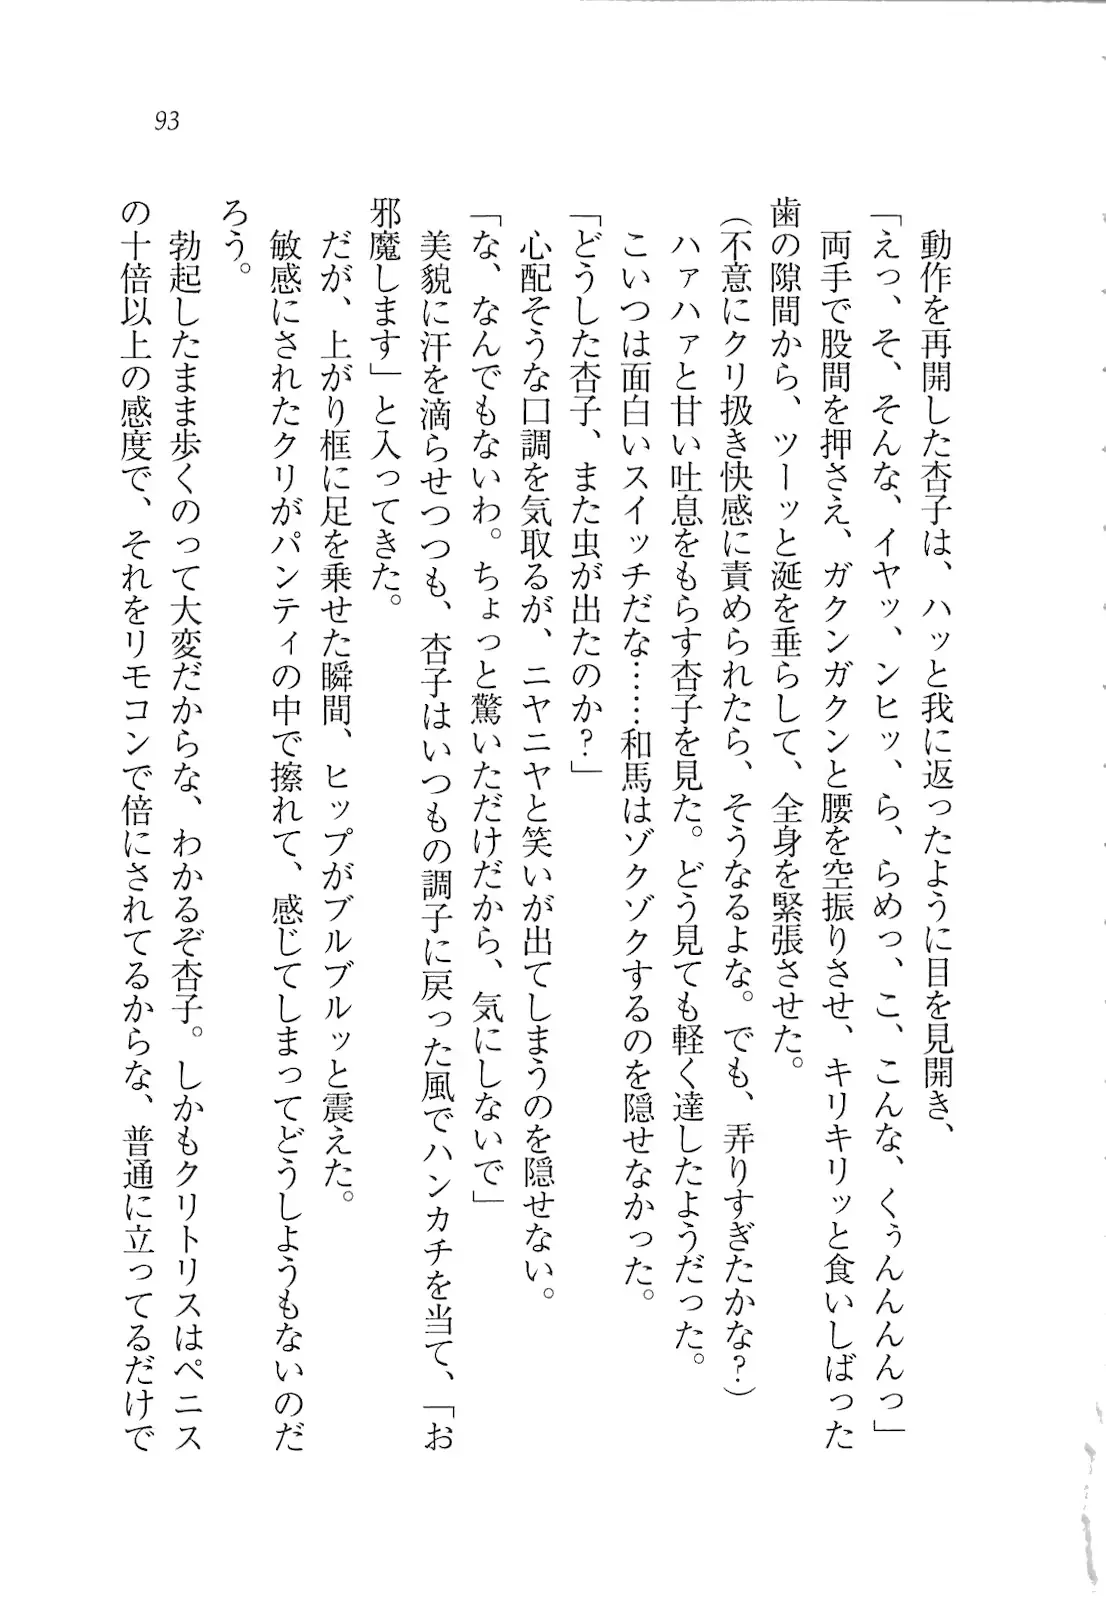 93
動作を再開した杏子は、ハッと我に返ったように目を見開き、
「えっ、そ、そんな、イヤッ、ンヒッ、ら、らめっ、こ、こんな、くぅんんんっ」
両手で股間を押さえ、ガクンガクンと腰を空振りさせ、キリキリッと食いしばった
歯の隙間から、ツーッと涎を垂らして、全身を緊張させた。
(不意にクリ扱き快感に責められたら、そうなるよな。でも、弄りすぎたかな?)
ハァハァと甘い吐息をもらす杏子を見た。どう見ても軽く達したようだった。
こいつは面白いスイッチだな……和馬はゾクゾクするのを隠せなかった。
「どうした杏子、また虫が出たのか?」
心配そうな口調を気取るが、ニヤニヤと笑いが出てしまうのを隠せない。
「な、なんでもないわ。ちょっと驚いただけだから、気にしないで」
美貌に汗を滴らせつつも、杏子はいつもの調子に戻った風でハンカチを当て、「お
邪魔します」と入ってきた。
だが、上がり框に足を乗せた瞬間、ヒップがブルブルッと震えた。
敏感にされたクリがパンティの中で擦れて、感じてしまってどうしようもないのだ
ろう。
勃起したまま歩くのって大変だからな、わかるぞ杏子。しかもクリトリスはペニス
の十倍以上の感度で、それをリモコンで倍にされてるからな、普通に立ってるだけで